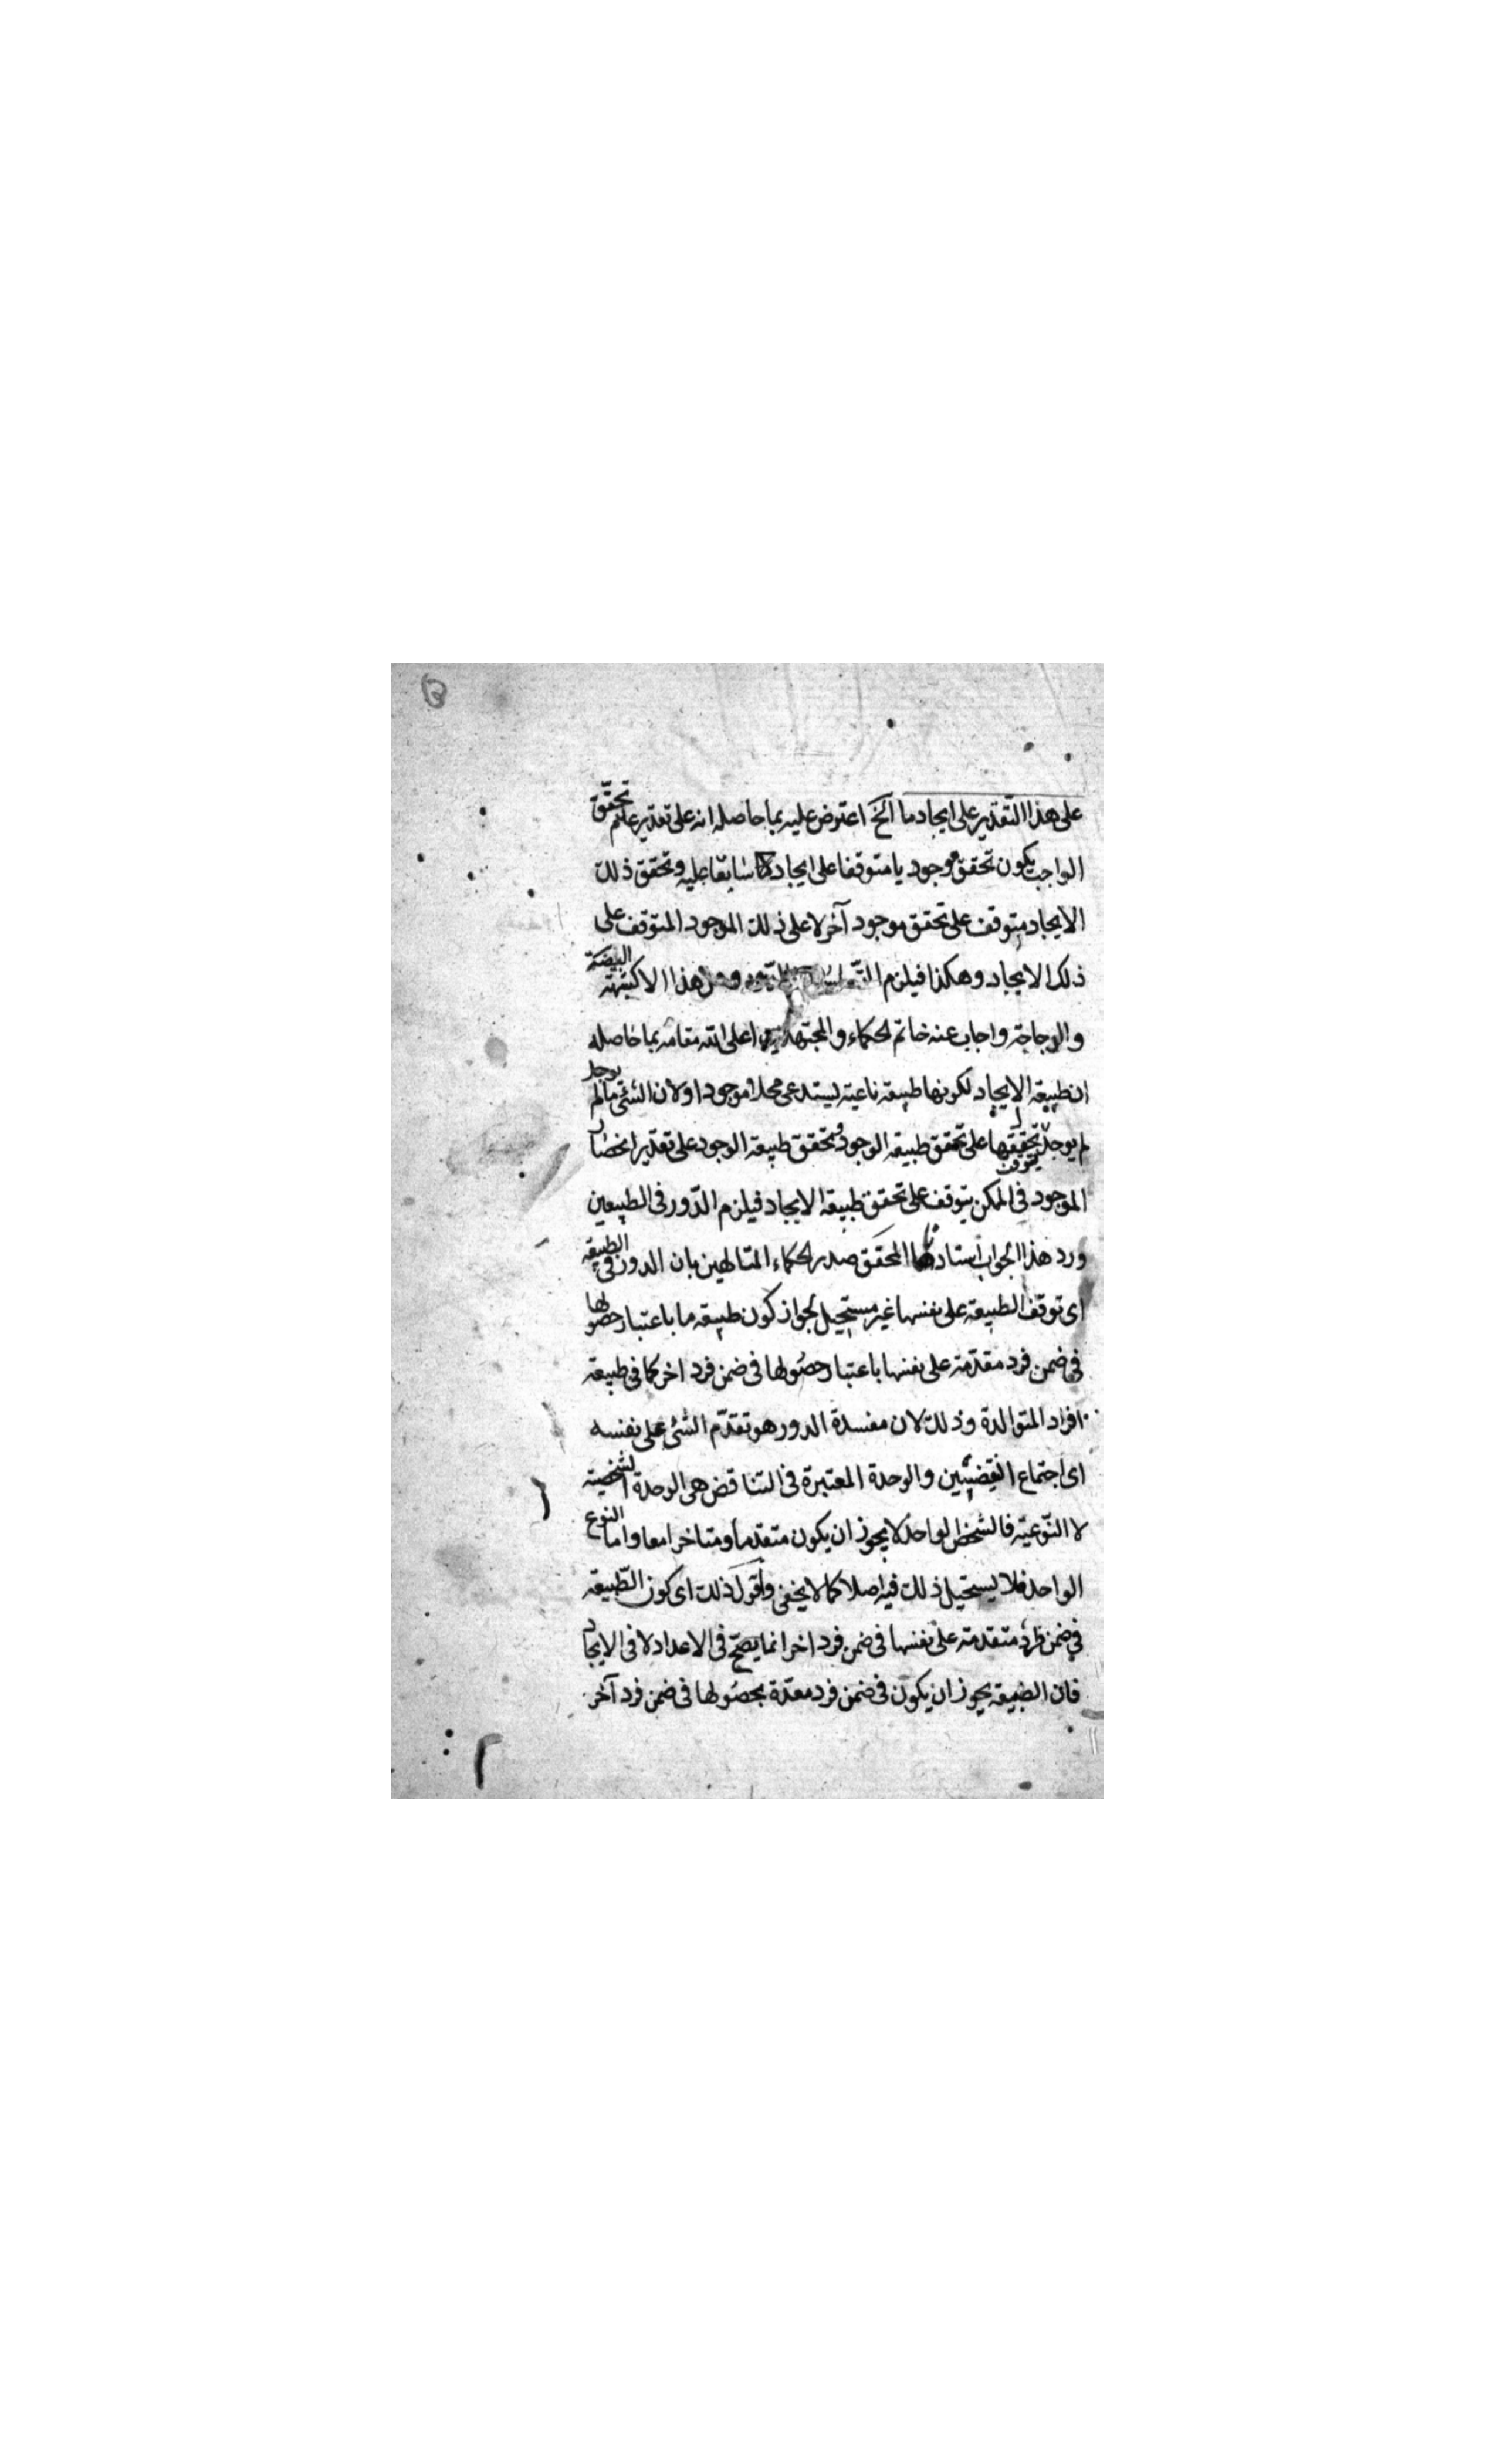 على هذا التّقدير على ايجاد ما الخ اعترض عليه بما حاصله انه على تقدير عدم تحقّق
الواجب يكون تحقق موجود يا متوقفا على ايجاد سابقا عليه وتحقق ذلك
الايجاد متوقف على تحقق موجود آخر لا على ذلك الموجود المتوقف على
ذلك الايجاد وهكذا فيلزم هذا الا كبيضة البيضة
والدجاجة واجاب عنه خاتم الحكماء والمجتهدين اعلى الله مقامه بما حاصله
ان طبيعة الايجاد لكونها طبيعة ناعتية يستدعى محلا موجودا ولان الشئ ما لم يوجد
لم يوجد يتوقف تحققها على تحقق طبيعة الوجود وتحقق طبيعة الوجود على تقدير انحصار
الموجود فى الممكن يتوقف على تحقق طبيعة الايجاد فيلزم الدّور فى الطبيعين
ورد هذا الجواب استادنا المحقق صدر الحكماء المتالهين بان الدور فى الطبيعة
اى توقف الطبيعة على نفسها غير مستحيل لجواز كون طبيعة ما باعتبار حصولها
فى ضمن فرد مقدّمة على نفسها باعتبار حصولها فى ضمن فرد اخر كما فى طبيعة
افراد المتوالدة وذلك لان مفسدة الدور هو تقدّم الشئ على نفسه
اى اجتماع النقيضين والوحدة المعتبرة فى التناقض هى الوحدة الشخصية
لا النّوعيّة فالشخص الواحد لا يجوز ان يكون متقدما ومتاخرا معا واما النوع
الواحد فلا يستحيل ذلك فيه اصلا كما لا يخفى واقول ذلك اى كون الطّبيعة
فى ضمن فرد متقدمة على نفسها فى ضمن فرد اخر انما يصحّ فى الاعداد لا فى الايجاد
فان الطبيعة يجوز ان يكون فى ضمن فرد معدّة بحصولها فى ضمن فرد آخر